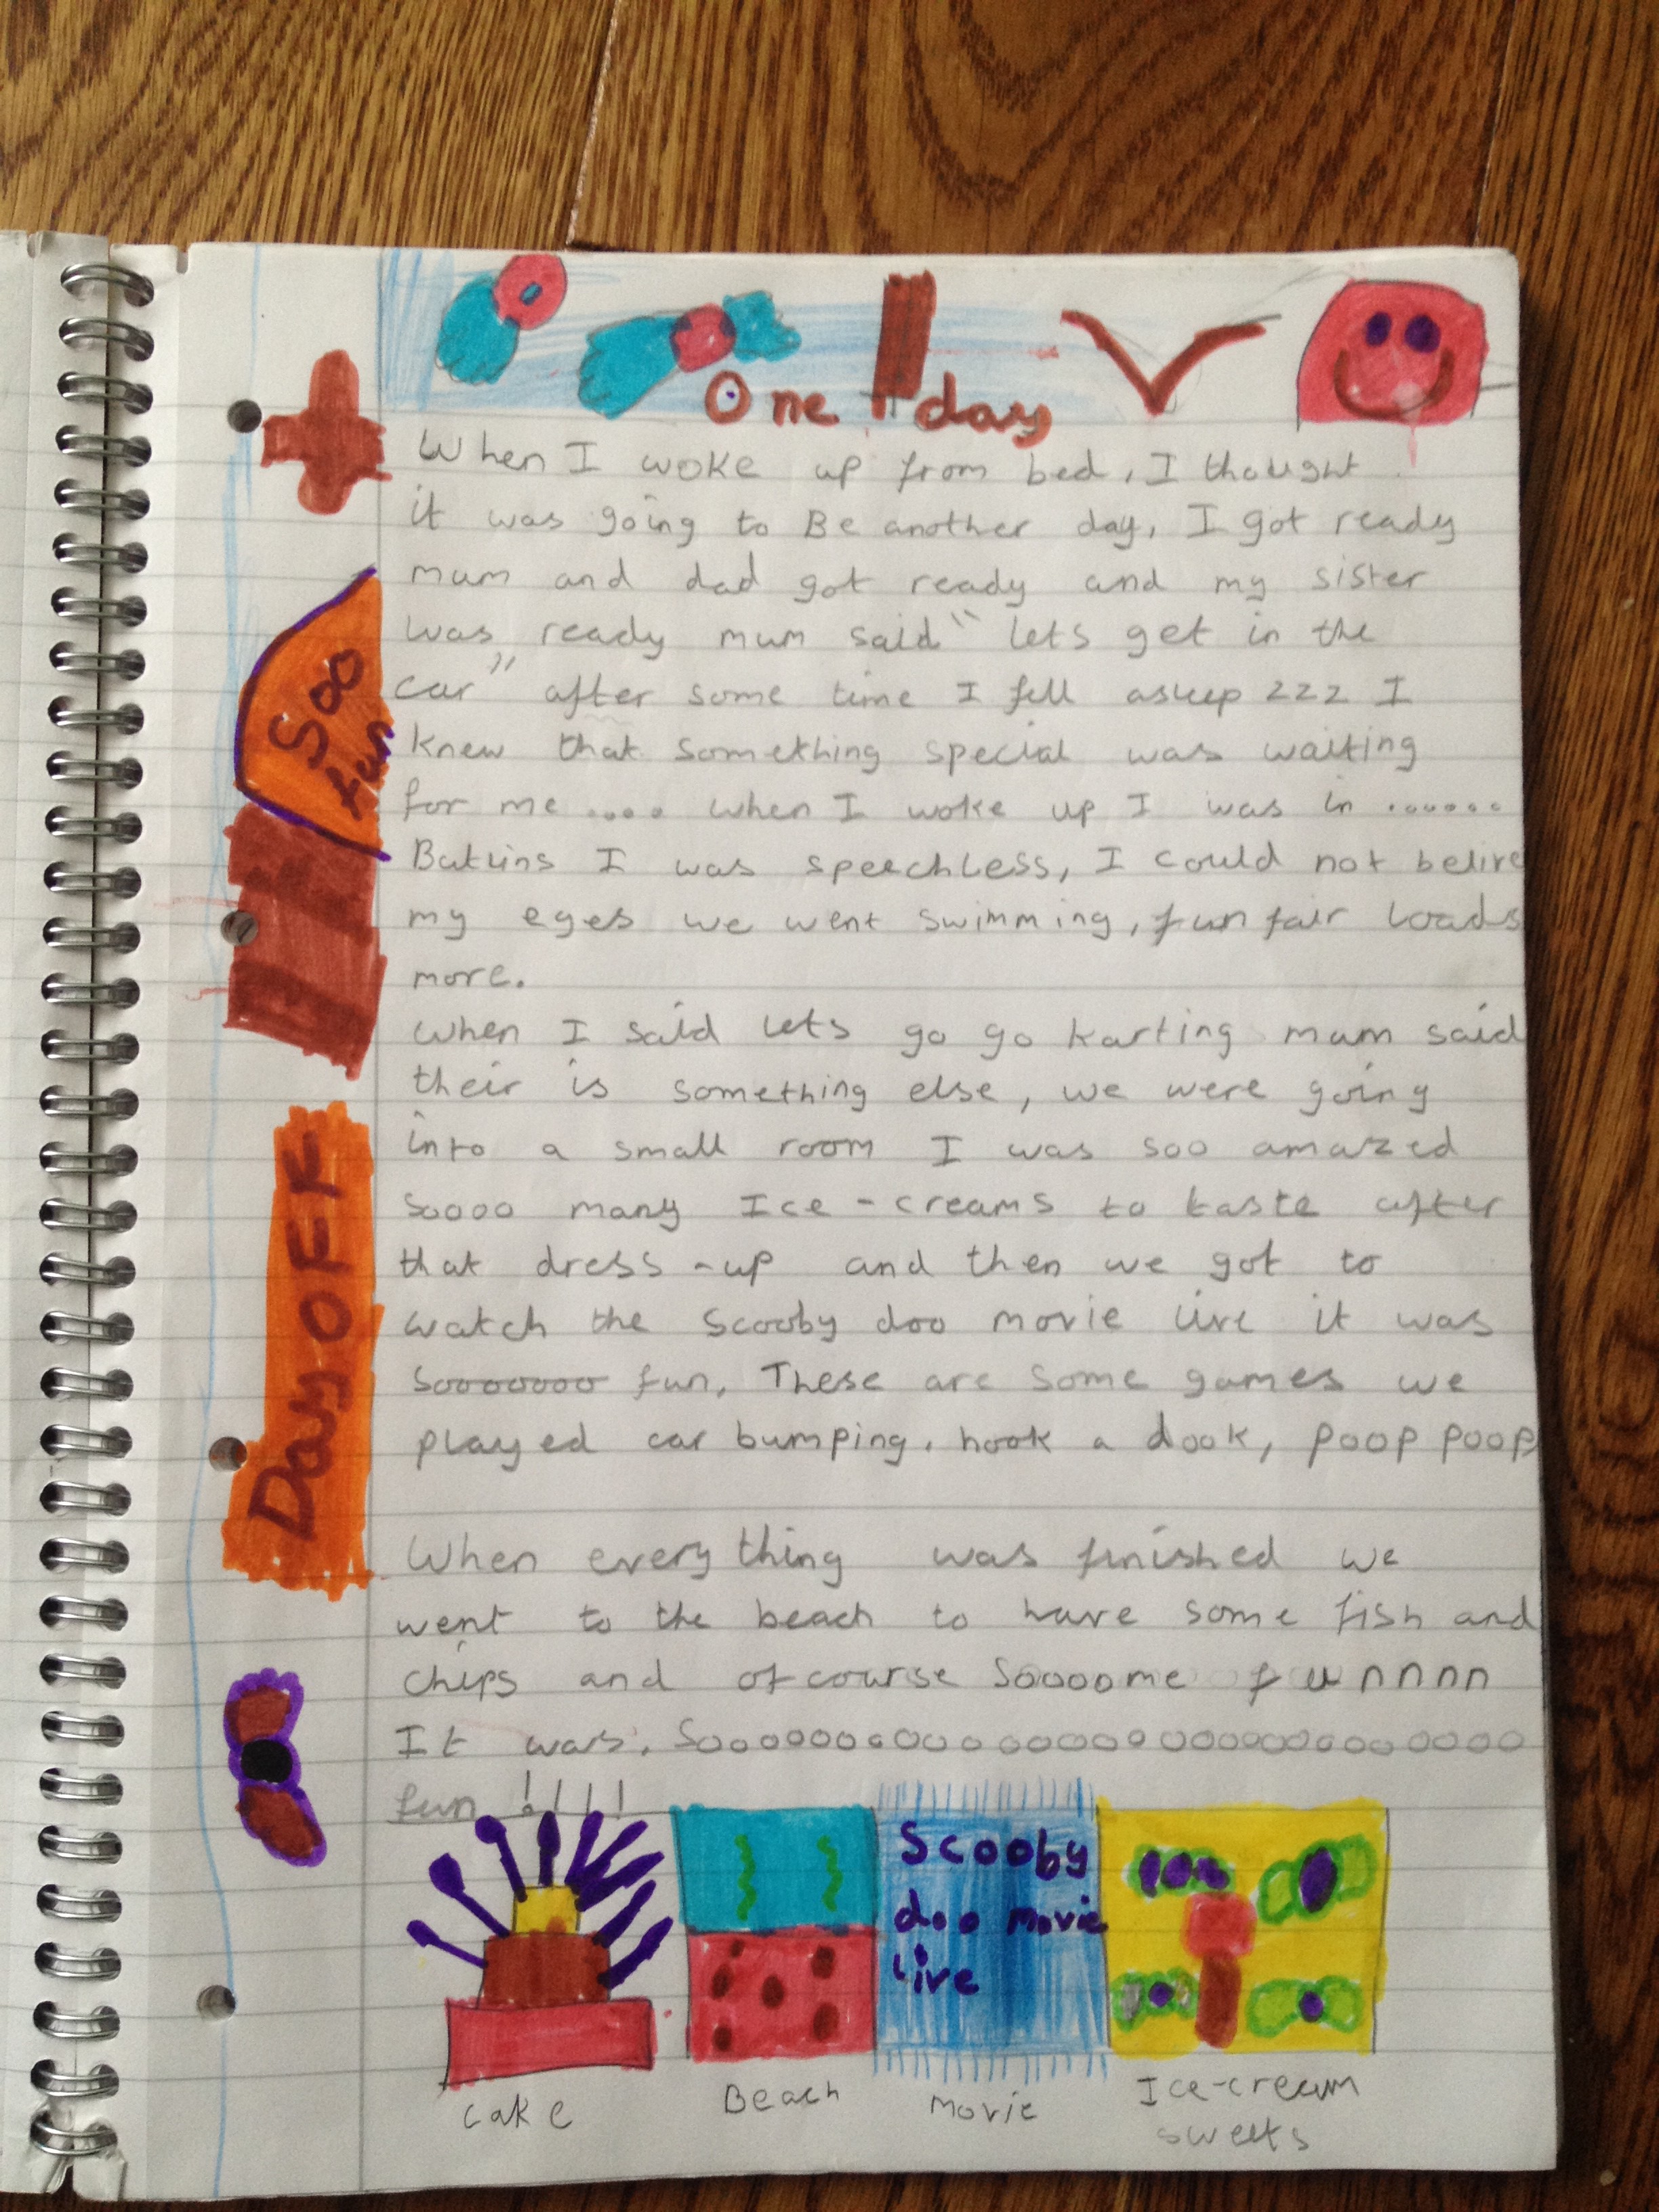 One day
When I woke up from bed, I thought
it was going to Be another day, I got ready
mum and dad got ready and my sister
was ready mum said "lets get in the
car" after some time I fell asleep zzz I
knew that something special was waiting
for me .... when I woke up I was in ......
Butlins I was speechless, I could not belive
my eyes we went swimming, fun fair loads
more.
When I said lets go go karting mum said
their is something else, we were going
into a small room I was soo amazed
soooo many Ice-creams to taste after
that dress-up and then we got to
watch the scooby doo movie live it was
soooooooo fun, These are some games we
played car bumping, hook a dook, poop poop
When every thing was finished we
went to the beach to have some fish and
chips and of course Soooome funnnn
It was. Soooooooooooooooooooooooooo
fun !!!!
Soo
fun
Day OFF
Scooby
doo movie
live
cake
Beach
movie
Ice-cream
sweets